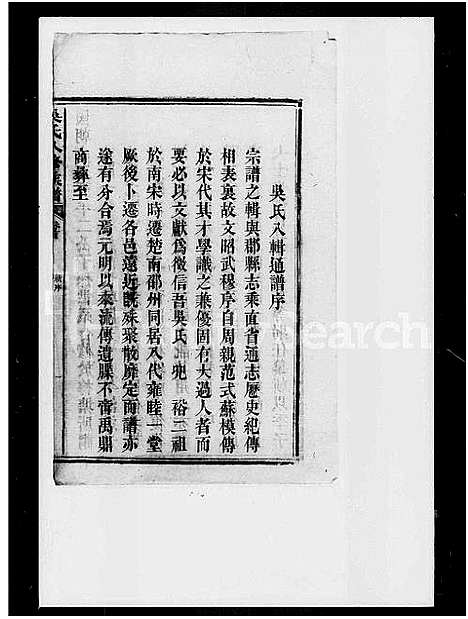 吳氏八輯通譜序
宗譜之輯與郡縣志乘直省通志歷史紀傳
相表裏故文昭武穆序自周親范式蘇模傳
於宋代其才學識之兼優固有大過人者而
要必以文獻爲徵信吾吳氏 兜 裕二祖
於南宋時遷楚南邵州同居八代雍睦一堂
厥後卜遷各邑遠近既殊聚散靡定而譜亦
遂有分合焉元明以來流傳遺牒不啻禹鼎
商彝至
吳氏八修族譜